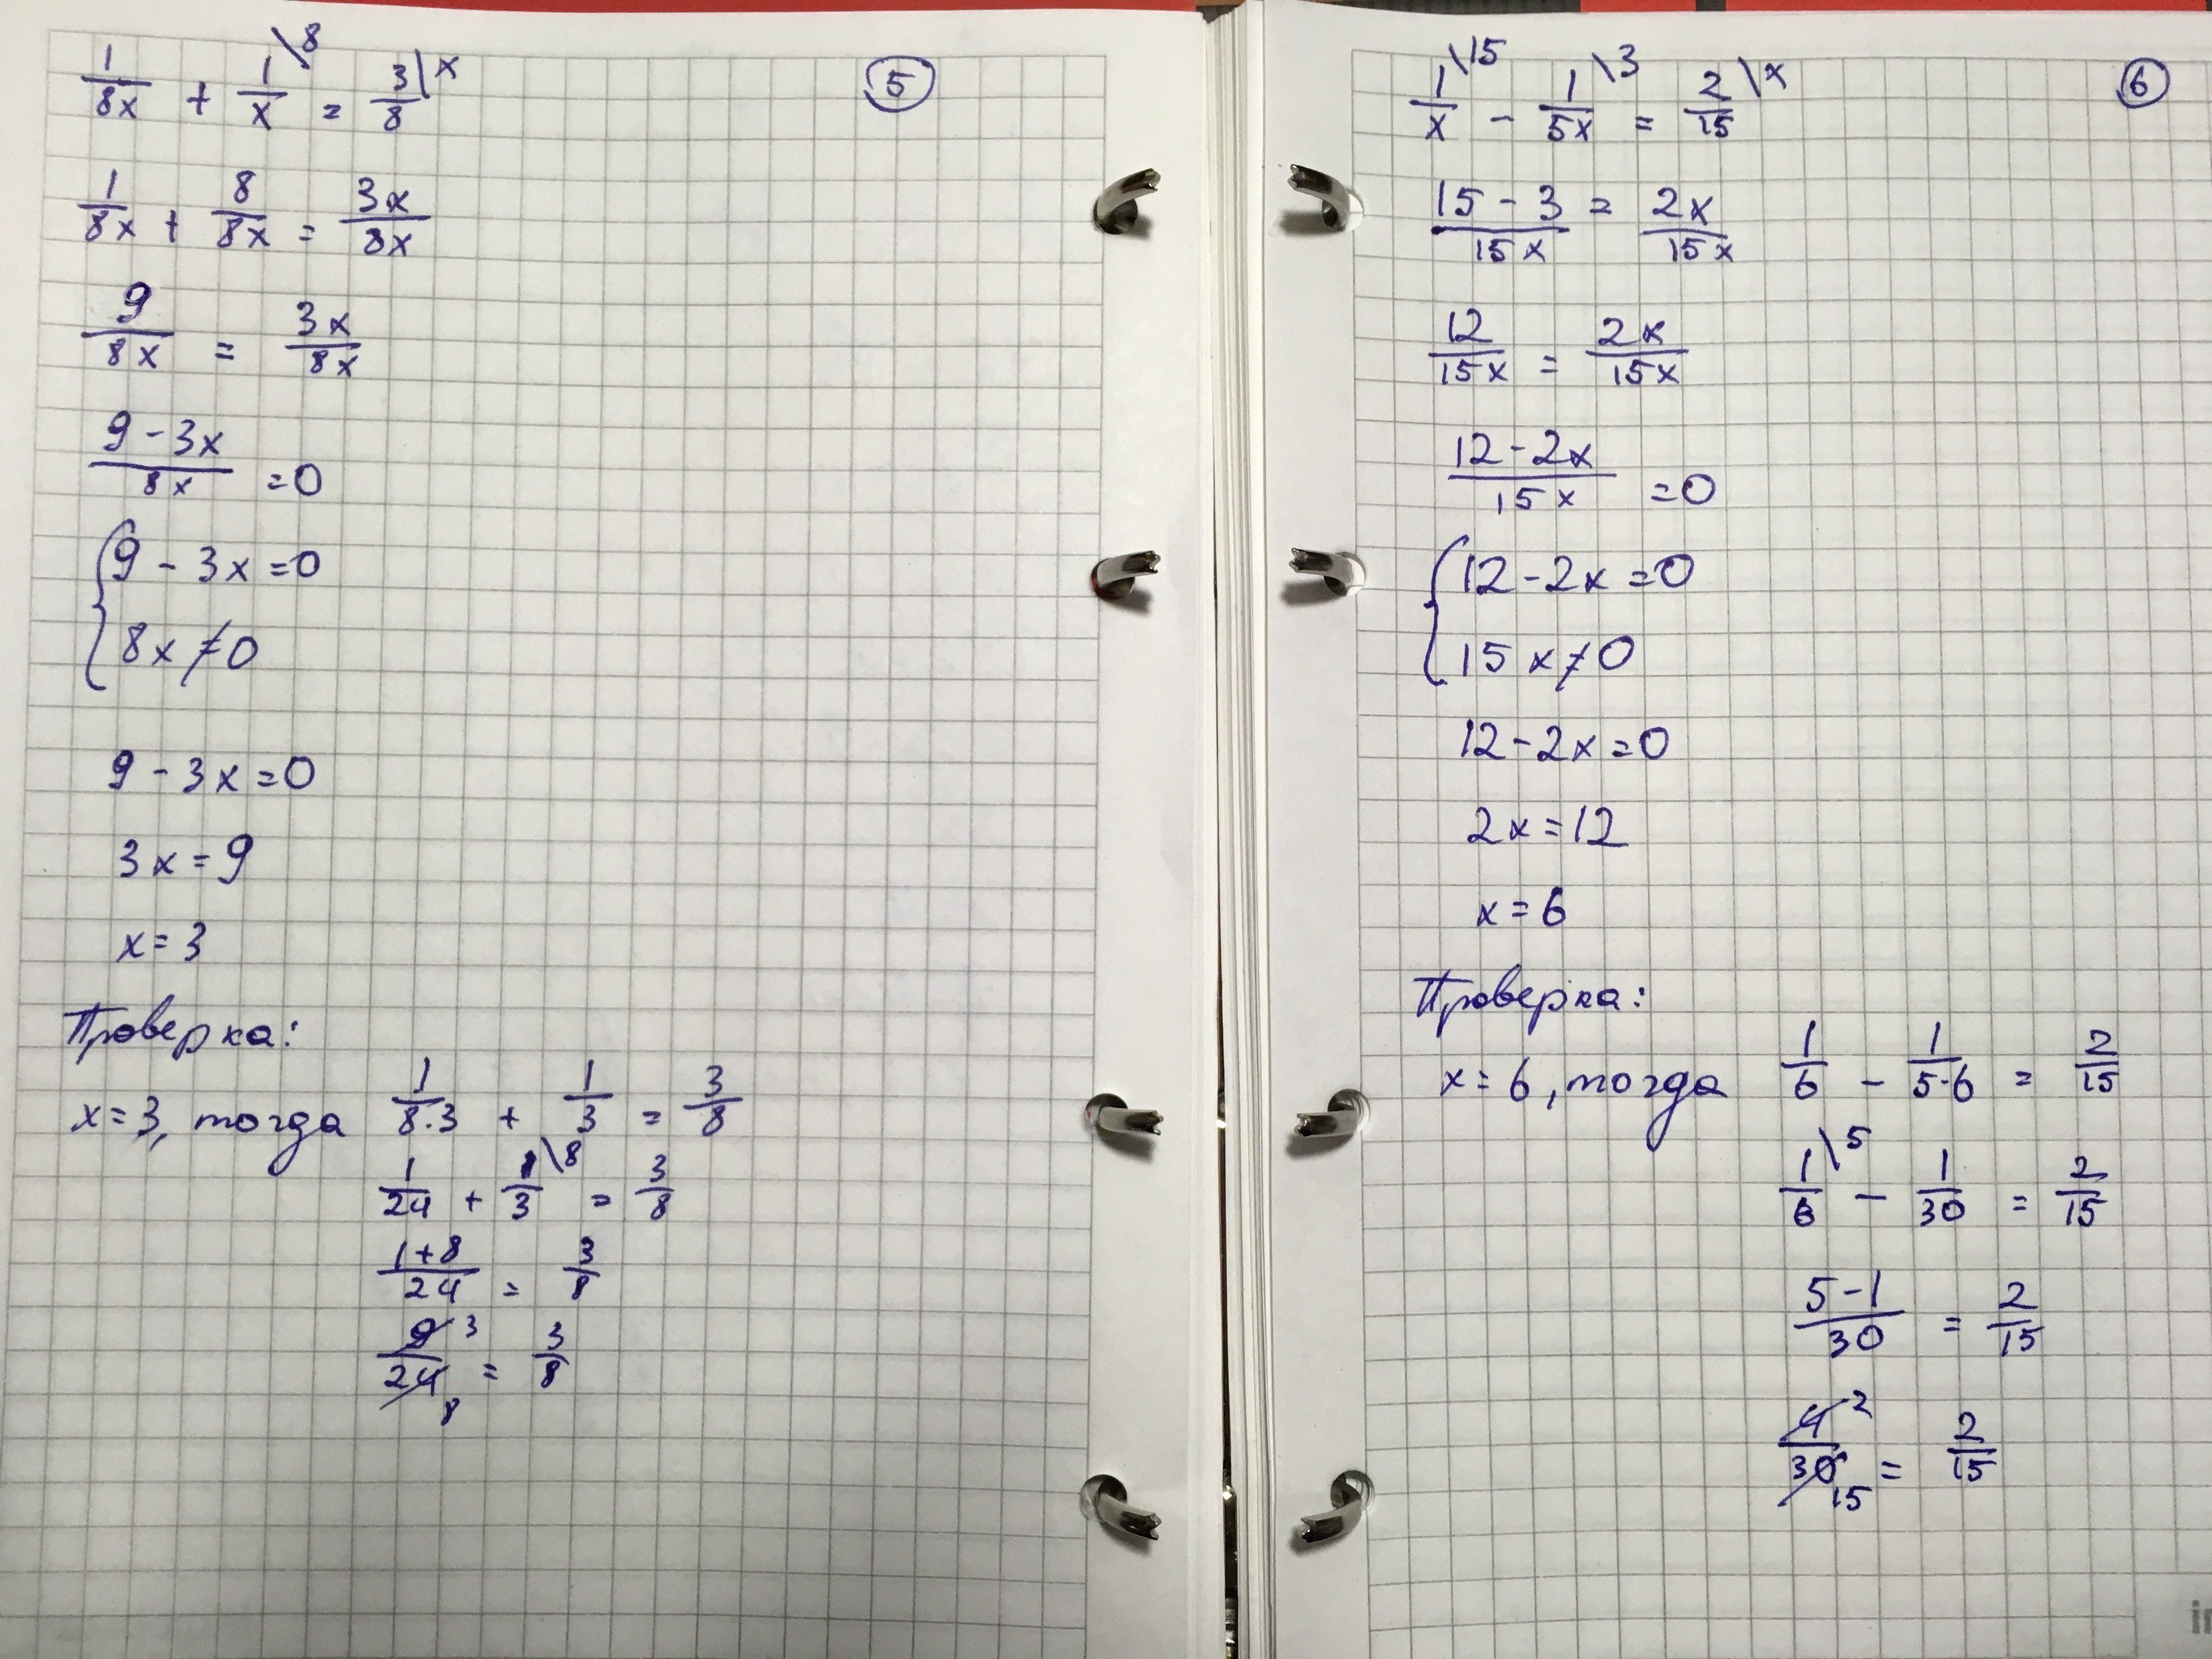 1/8x + 1/x\8 = 3/8\x
5
1/8x + 8/8x = 3x/8x
9/8x = 3x/8x
(9 - 3x)/8x = 0
{ 9 - 3x = 0
8x ≠ 0
9 - 3x = 0
3x = 9
x = 3
Проверка:
x = 3, тогда 1/(8·3) + 1/3 = 3/8
1/24 + 1/3\8 = 3/8
(1+8)/24 = 3/8
9/24 3/8 = 3/8
1/x\15 - 1/5x\3 = 2/15\x
6
(15 - 3)/15x = 2x/15x
12/15x = 2x/15x
(12 - 2x)/15x = 0
{ 12 - 2x = 0
15x ≠ 0
12 - 2x = 0
2x = 12
x = 6
Проверка:
x = 6, тогда 1/6 - 1/(5·6) = 2/15
1/6\5 - 1/30 = 2/15
(5 - 1)/30 = 2/15
4/30 2/15 = 2/15